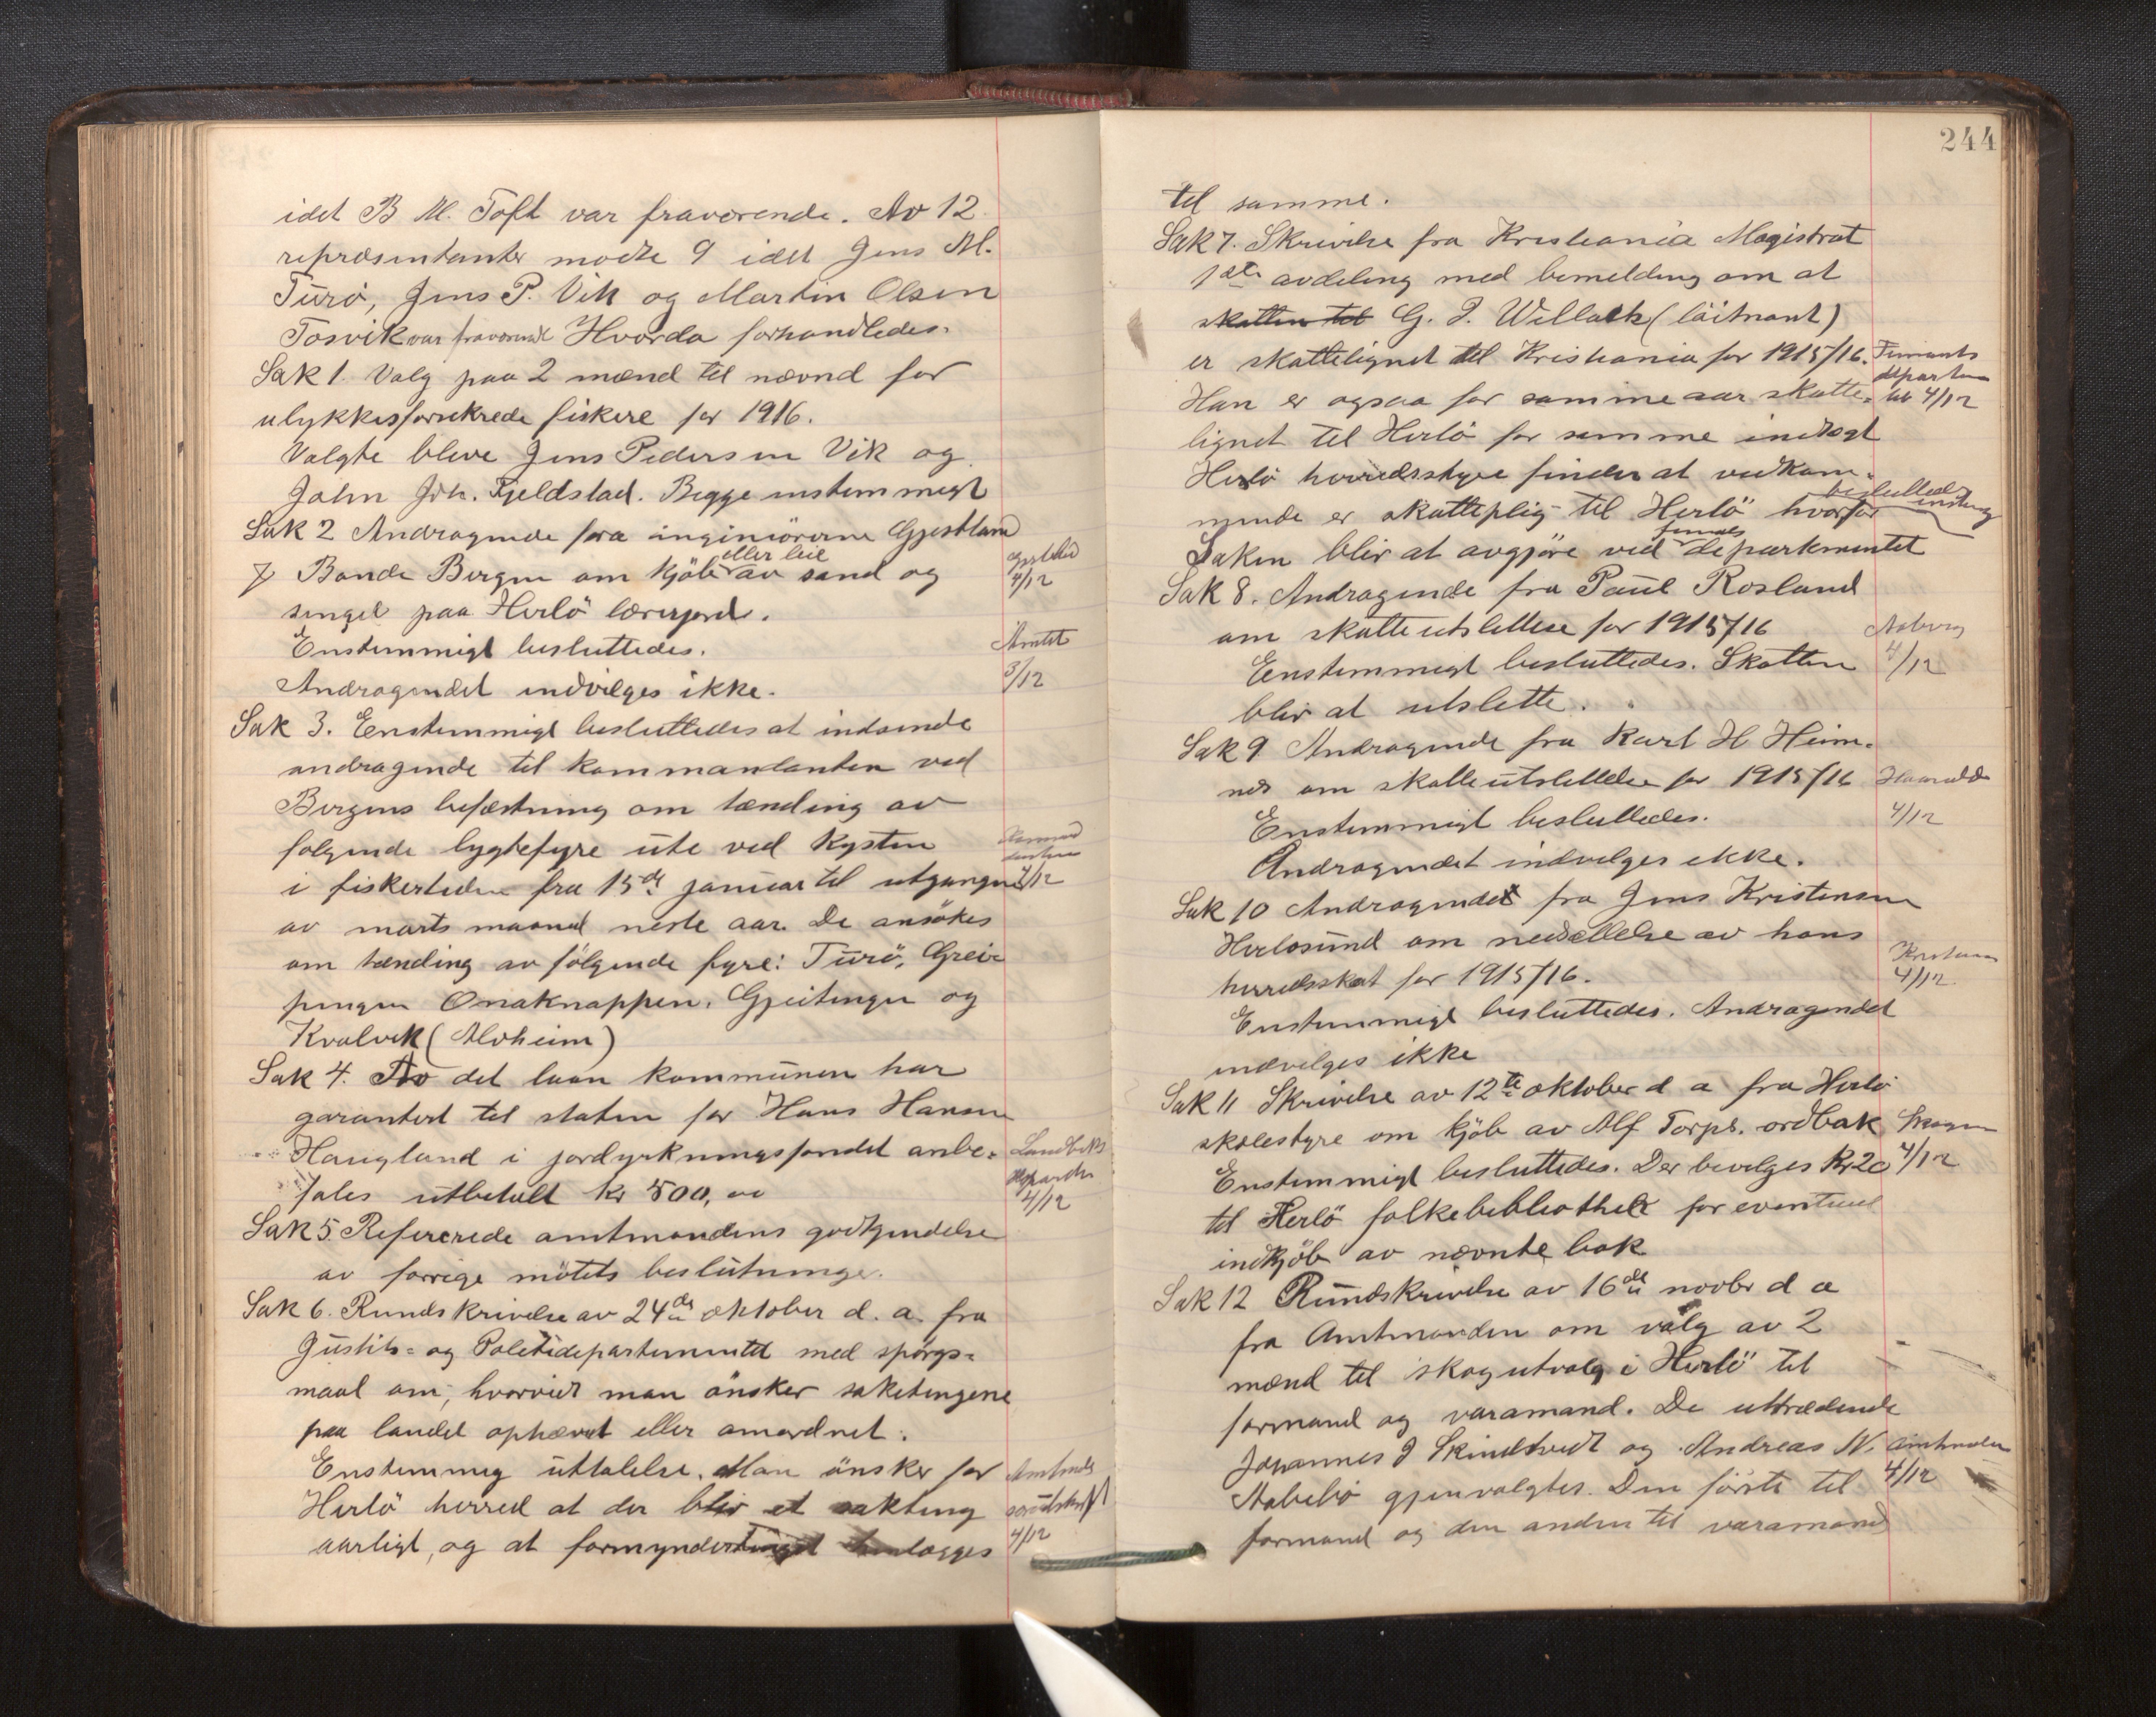 idet B M. Toft var fraværende. Av 12
repræsentanter mødte 9 idet Jens M.
Turø, Jens P. Vik og Martin Olsen
Tosvik var fraværende Hvorda forhandledes.
Sak 1. Valg paa 2 mænd til nævnd for
ulykkesforsikrede fiskere for 1916.
Valgte bleve Jens Pedersen Vik og
John Joh. Fjeldstad. Begge enstemmigt
Sak 2 Andragende fra ingeniörerne Gjestland
eller leie
& Bonde Bergen om kjöb av sand og
Gjestland
4/12
singel paa Herlö lærerjord.
Enstemmigt besluttedes.
Amtet
3/12
Andragendet indvilges ikke.
Sak 3. Eenstemmigt besluttedes at indsende
andragende til kommandanten ved
Bergens befæstning om tænding av
følgende lygtefyre ute ved kysten
i fisketiden fra 15de januar til utgangen
4/12
av marts maaned neste aar. De ansökes
om tænding av fölgende fyre: Turö, Grei-
pingen Onaknappen, Gjeitingen og
Kvalvik (Alvheim)
Sak 4. Av det laan kommunen har
garantert til staten for Hans Hansen
Haugland i jordyrkningsfondet anbe-
Landbruks
departm
4/12
fales utbetalt kr 500,00
Sak 5 Refererede amtmandens godkjendelse
av forrige mötets beslutninger.
Sak 6. Rundskrivelse av 24de oktober d. a. fra
Justits- og Politidepartementet med spörgs-
maal om, hvorvidt man önsker saketingene
paa landet ophævet eller omordnet.
Enstemmig uttalelse. Man önsker for
Amtmds
Herlö herred at der blir et sakting
rundskrift
4/12
aarligt, og at formyndertinget henlægges
244
til samme.
Sak 7. Skrivelse fra Kristiania Magistrat
1ste avdeling med bemelding om at
skatten til G. J. Wellack (löitnant)
er skattelignet til Kristiania for 1915/16.
Finants
departem
4/12
Han er ogsaa for samme aar skatte-
lignet til Herlö for samme indtægt
Herlö herredsstyre finder at vedkom-
mende er skatteplig til Herlö hvorfor
besluttedes
enstemig
Saken blir at avgjöre ved finants departementet
Sak 8. Andragende fra Paul Rosland
om skatteutslettelse for 1915/16
4/12
Eenstemmigt besluttedes. Skatten
blir at utslette.
Sak 9 Andragende fra Karl H Heim-
nes om skatteutslettelse for 1915/16
4/12
Enstemmigt besluttedes.
Andragendet indvilges ikke.
Sak 10 Andragendet fra Jens Kristensen
Herlösund om nedsettelse av hans
Kristensen
4/12
herredsskat for 1915/16.
Enstemmigt besluttedes. Andragendet
indvilges ikke
Sak 11 Skrivelse av 12te oktober d a fra Herlö
skolestyre om kjöb av Alf Torps. ordbok
4/12
Enstemmigt besluttedes. Der bevilges Kr 20
til Herlö folkebibliothek for eventuel
indkjöb av nævnte bok
Sak 12 Rundskrivelse av 16de novbr d a
fra Amtmanden om valg av 2
mænd til skogutvalg i Herlö til
formand og varamand. De uttrædende
Johannes J Skindtveit og Andreas N.
Amtmanden
4/12
Aabebö gjenvalgtes. Den förste til
formand og den anden til varamand